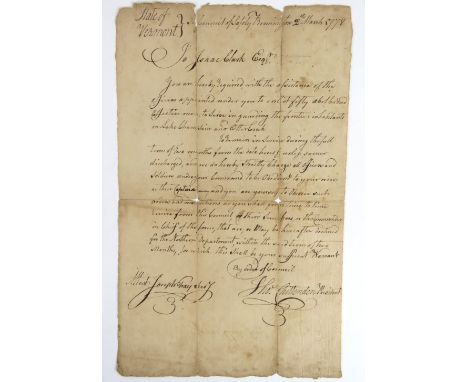 State of
Vermont } In Council of Safety Bennington 2th March 1778
To Isaac Clark Esqr.
You are hereby required with the assistance of the
officers appointed under you to enlist fifty able bodied
Effective men, to serve in guarding the frontier inhabitants
on Lake Champlain and Otter Creek
To remain in Service during the full
term of two months from the date hereof unless sooner
discharged, and we do hereby Strictly Charge all officers and
Soldiers under your Command to be Obedient to your orders
as their Captain and you are yourself to Observe such
orders and directions as you shall from time to time
receive from this Council or their Successors or the Commander
in Chief of the forces, that are, or May be hereafter destined
for the Northern Department, within the said term of two
Months, for which this Shall be your sufficient Warrant
By order of Council
Attest Joseph Fay Secy
Thos. Chittenden President